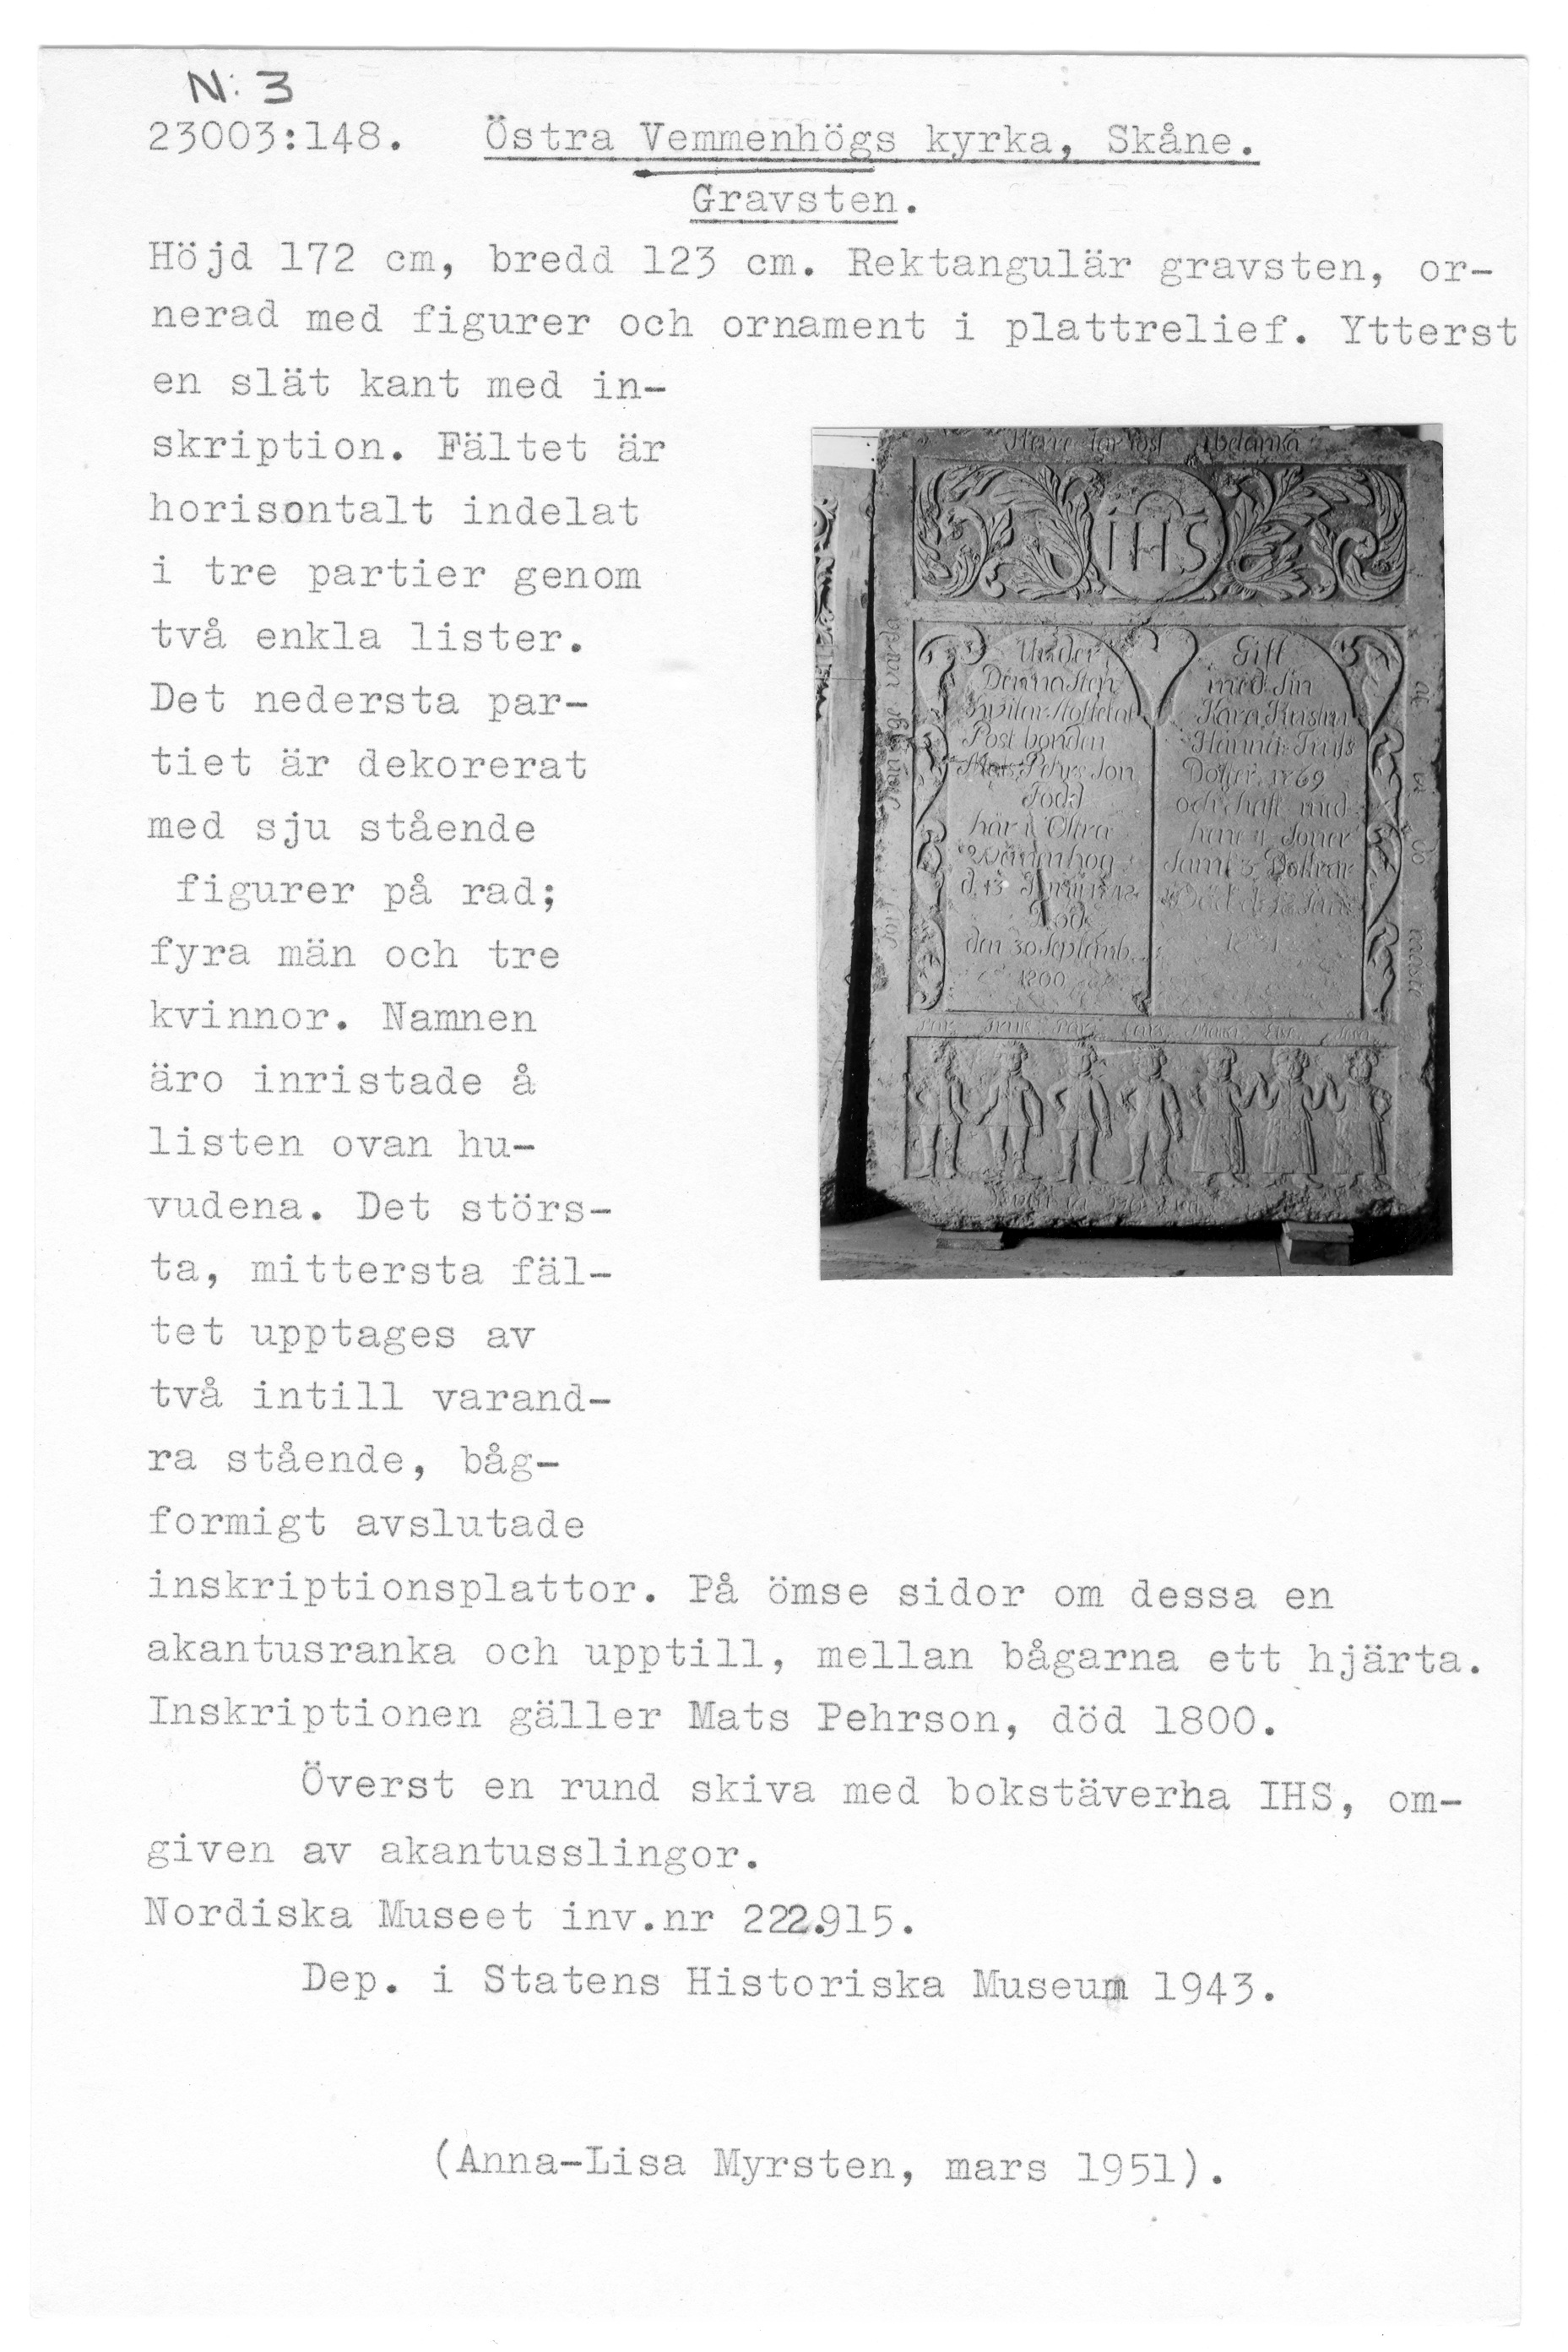 N: 3
23003:148. Östra Vemmenhögs kyrka, Skåne.
Gravsten.
Höjd 172 cm, bredd 123 cm. Rektangulär gravsten, or-
nerad med figurer och ornament i plattrelief. Ytterst
en slät kant med in-
skription. Fältet är
horisontalt indelat
i tre partier genom
två enkla lister.
Det nedersta par-
tiet är dekorerat
med sju stående
figurer på rad;
fyra män och tre
kvinnor. Namnen
äro inristade å
listen ovan hu-
vudena. Det störs-
ta, mittersta fäl-
tet upptages av
två intill varand-
ra stående, båg-
formigt avslutade
inskriptionsplattor. På ömse sidor om dessa en
akantusranka och upptill, mellan bågarna ett hjärta.
Inskriptionen gäller Mats Pehrson, död 1800.
Överst en rund skiva med bokstäverna IHS, om-
given av akantusslingor.
Nordiska Museet inv.nr 222.915.
Dep. i Statens Historiska Museum 1943.
(Anna-Lisa Myrsten, mars 1951).
IHS
Under
Denna Sten
Post bonden
Född
här i Östra
d. 13
Död
den 30 Septemb.
1800
Gift
med Sin
Kära
Hanna
1769
och
Samt 3 Döttrar